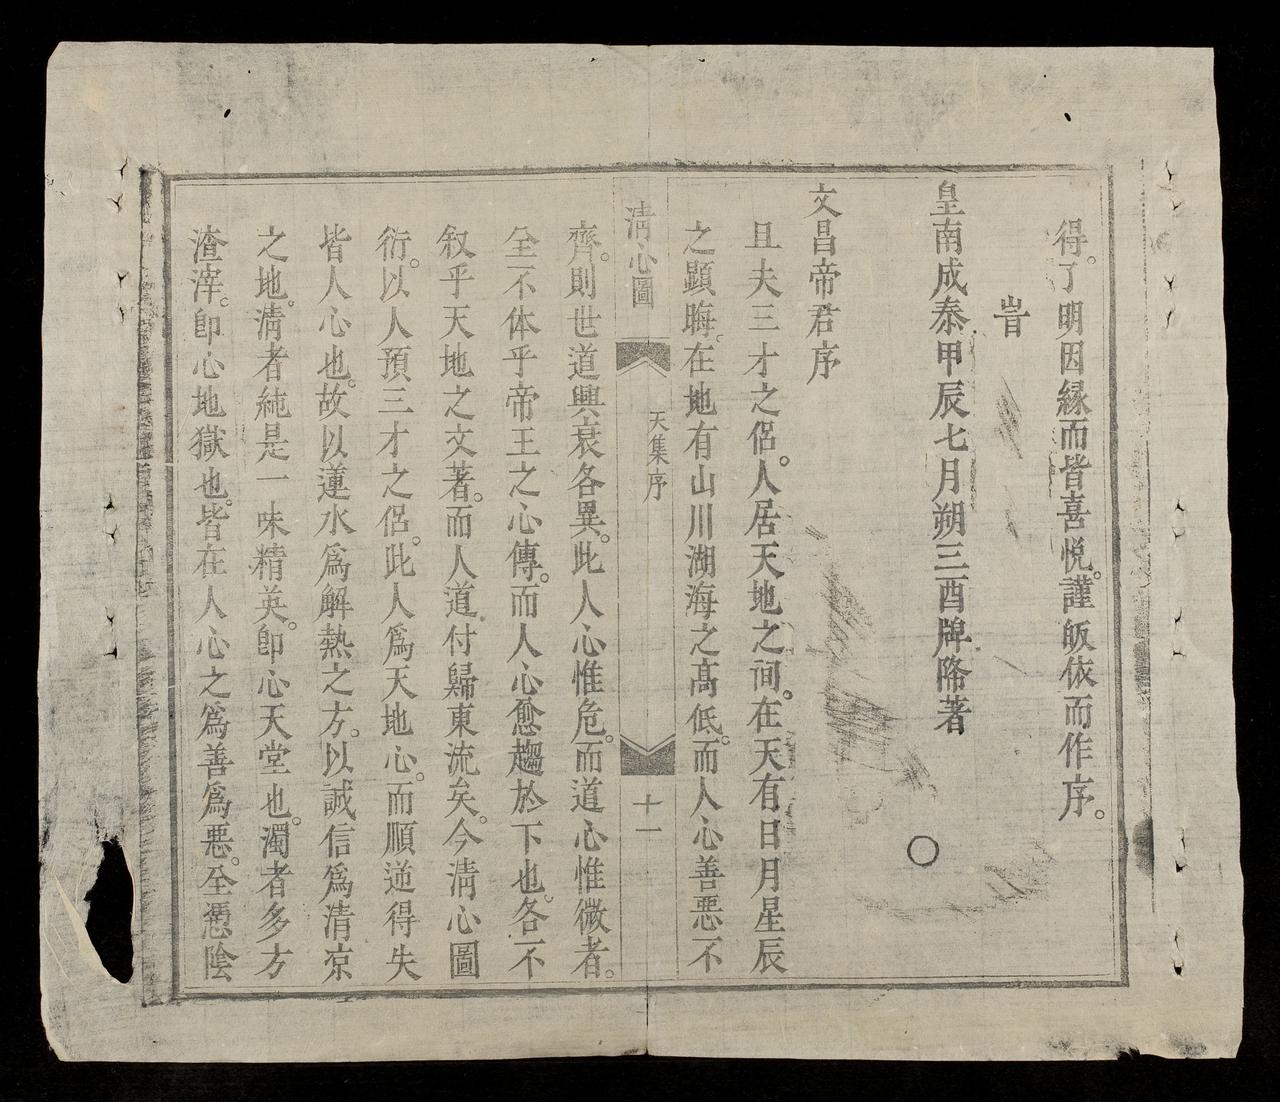 得。了明因緣而皆喜悅。謹皈依而作序。
旹
皇南成泰甲辰七月朔三酉牌降著
文昌帝君序
且夫三才之侶。人居天地之间。在天有日月星辰
之顕晦。在地有山川湖海之髙低。而人心善悪不
清心圖
天集序
十一
齊。則世道興衰各異。此人心惟危。而道心惟微者。
全不体乎帝王之心傳。而人心愈趨於下也。各不
叙乎天地之文著。而人道付歸東流矣。今清心圖
衍。以人預三才之侶。此人爲天地心。而順逆得失
皆人心也。故以蓮水爲解熱之方。以誠信爲清凉
之地。清者純是一味精英。卽心天堂也。濁者多方
渣滓。卽心地獄也。皆在人心之爲善爲悪。全憑陰